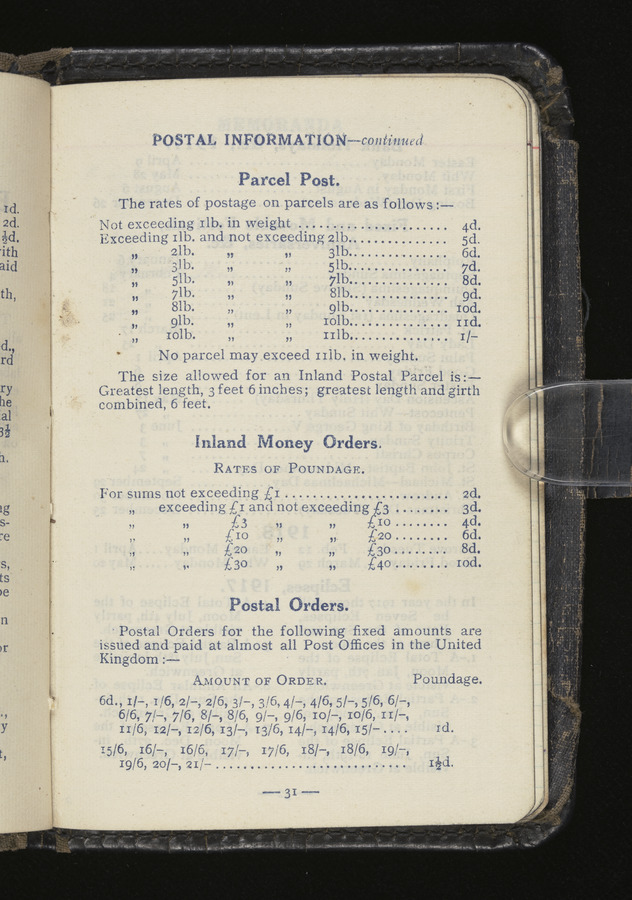 POSTAL INFORMATION—continued
Parcel Post.
The rates of postage on parcels are as follows :—
Not exceeding 1lb. in weight .................. 4d.
Exceeding 1lb. and not exceeding 2lb............... 5d.
„ 2lb. „ „ 3lb............... 6d.
„ 3lb. „ „ 5lb............... 7d.
„ 5lb. „ „ 7lb............... 8d.
„ 7lb. „ „ 8lb............... 9d.
„ 8lb. „ „ 9lb............... 10d.
„ 9lb. „ „ 10lb............... 11d.
„ 10lb. „ „ 11lb............... 1/-
No parcel may exceed 11lb. in weight.
The size allowed for an Inland Postal Parcel is:—
Greatest length, 3 feet 6 inches; greatest length and girth
combined, 6 feet.
Inland Money Orders.
RATES OF POUNDAGE.
For sums not exceeding £1 ..................... 2d.
„ exceeding £1 and not exceeding £3 ........ 3d.
„ „ £3 „ „ £10 ........ 4d.
„ „ £10 „ „ £20 ........ 6d.
„ „ £20 „ „ £30 ........ 8d.
„ „ £30 „ „ £40 ........ 10d.
Postal Orders.
Postal Orders for the following fixed amounts are
issued and paid at almost all Post Offices in the United
Kingdom :—
AMOUNT OF ORDER. Poundage.
6d., 1/-, 1/6, 2/-, 2/6, 3/-, 3/6, 4/-, 4/6, 5/-, 5/6, 6/-,
6/6, 7/-, 7/6, 8/-, 8/6, 9/-, 9/6, 10/-, 10/6, 11/-,
11/6, 12/-, 12/6, 13/-, 13/6, 14/-, 14/6, 15/- .... 1d.
15/6, 16/-, 16/6, 17/-, 17/6, 18/-, 18/6, 19/-,
19/6, 20/-, 21/- ............................ 1½d.
— 31 —